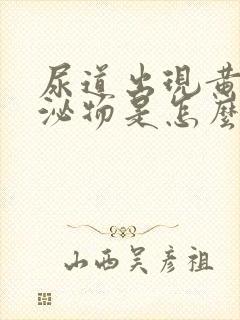 尿道出現黄
泌物是怎麼
山西吴彦祖